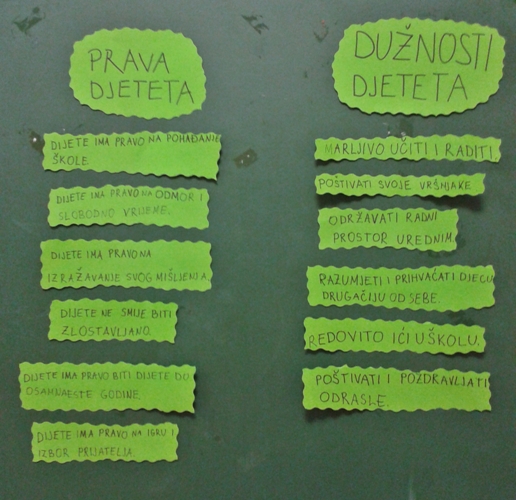 PRAVA
DJETETA
DIJETE IMA PRAVO NA POHAĐANJE
ŠKOLE
DIJETE IMA PRAVO NA ODMOR I
SLOBODNO VRIJEME.
DIJETE IMA PRAVO NA
IZRAŽAVANJE SVOG MIŠLJENJA.
DIJETE NE SMIJE BITI
ZLOSTAVLJANO.
DIJETE IMA PRAVO BITI DIJETE DO
OSAMNAESTE GODINE.
DIJETE IMA PRAVO NA IGRU I
IZBOR PRIJATELJA.
DUŽNOSTI
DJETETA
MARLJIVO UČITI I RADITI.
POŠTIVATI SVOJE VRŠNJAKE
ODRŽAVATI RADNI
PROSTOR UREDNIM.
RAZUMJETI I PRIHVAĆATI DJECU
DRUGAČIJU OD SEBE.
REDOVITO IĆI U ŠKOLU.
POŠTIVATI I POZDRAVLJATI
ODRASLE.